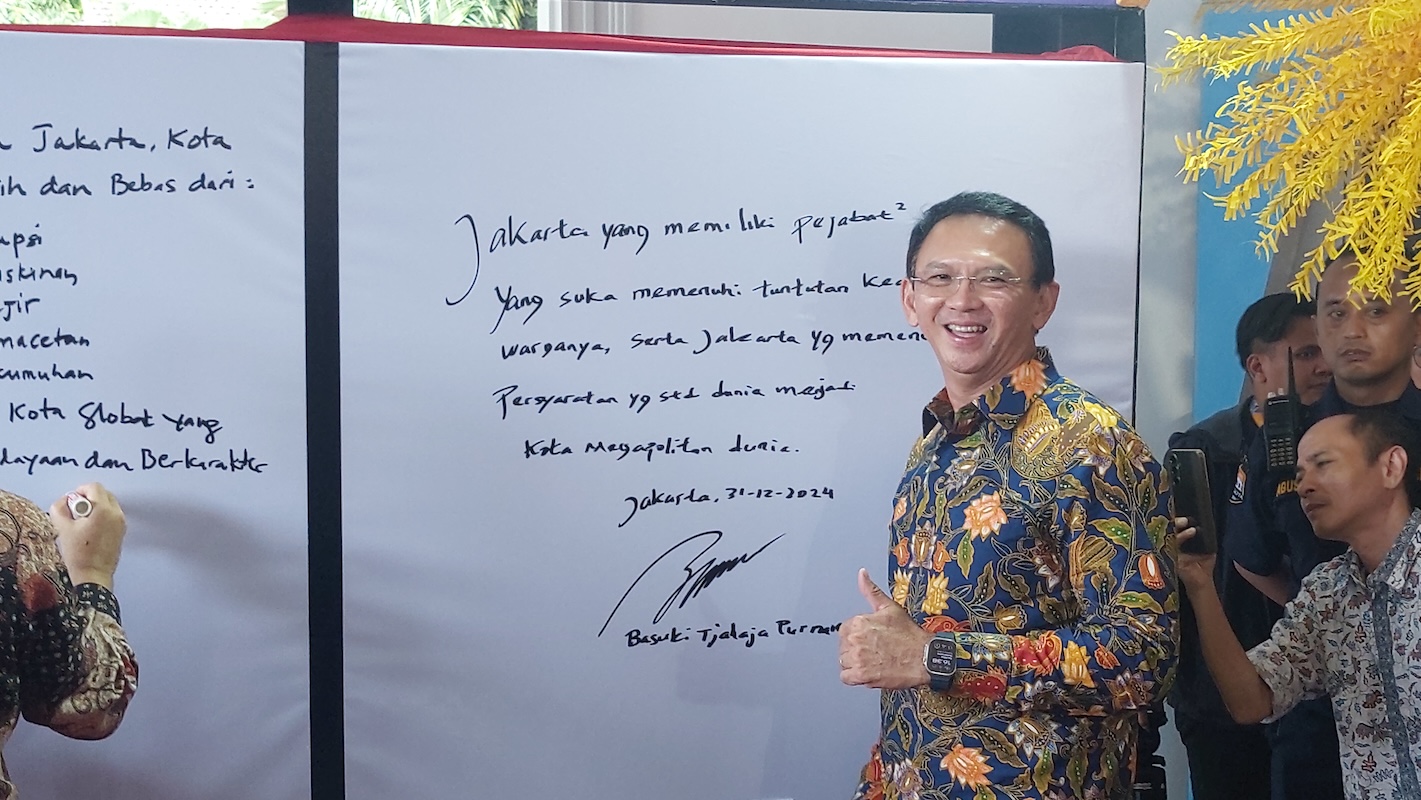 Jakarta, Kota
dan Bebas dari :
Kota Global yang
dan Berkarakter
Jakarta yang memiliki pejabat²
yang suka memenuhi tuntutan
warganya, serta Jakarta yg
Persyaratan yg std dunia menjadi
Kota Megapolitan dunia.
Jakarta, 31-12-2024
Basuki Tjahaja